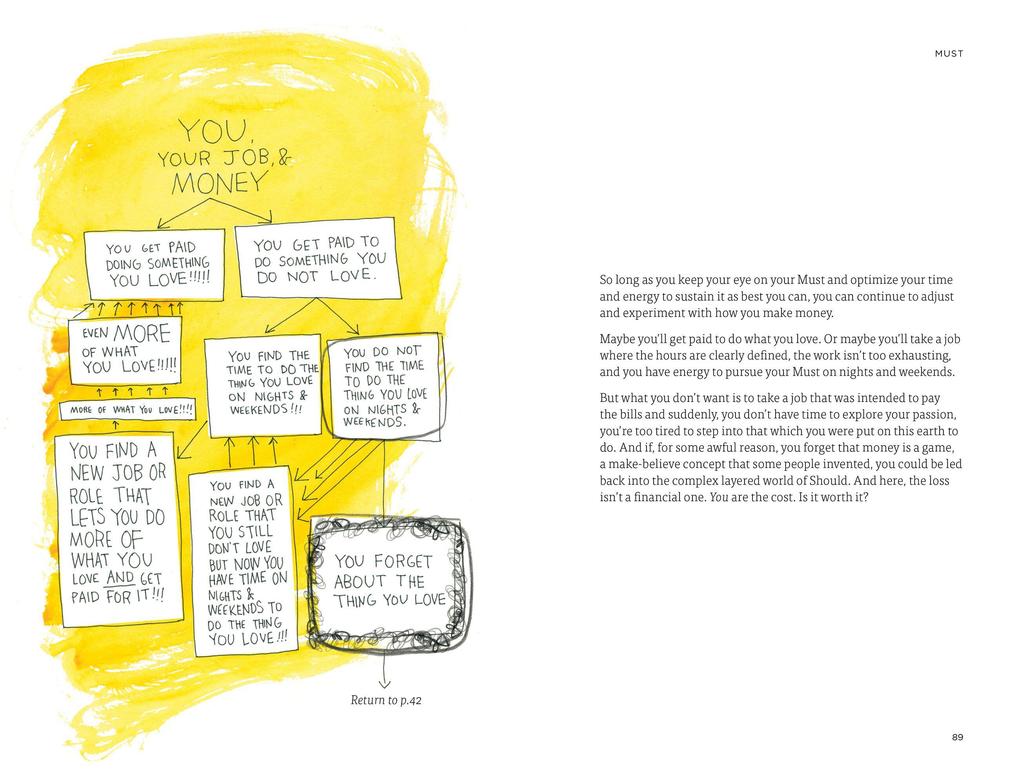 YOU,
YOUR JOB, &
MONEY
YOU GET PAID
DOING SOMETHING
YOU LOVE!!!!!
YOU GET PAID TO
DO SOMETHING YOU
DO NOT LOVE.
EVEN MORE
OF WHAT
YOU LOVE!!!!!
YOU FIND THE
TIME TO DO THE
THING YOU LOVE
ON NIGHTS &
WEEKENDS!!!
YOU DO NOT
FIND THE TIME
TO DO THE
THING YOU LOVE
ON NIGHTS &
WEEKENDS.
MORE OF WHAT YOU LOVE!!!!
YOU FIND A
NEW JOB OR
ROLE THAT
LETS YOU DO
MORE OF
WHAT YOU
LOVE AND GET
PAID FOR IT!!!
YOU FIND A
NEW JOB OR
ROLE THAT
YOU STILL
DON'T LOVE
BUT NOW YOU
HAVE TIME ON
NIGHTS &
WEEKENDS TO
DO THE THING
YOU LOVE!!!
YOU FORGET
ABOUT THE
THING YOU LOVE
Return to p.42
MUST
So long as you keep your eye on your Must and optimize your time
and energy to sustain it as best you can, you can continue to adjust
and experiment with how you make money.
Maybe you'll get paid to do what you love. Or maybe you'll take a job
where the hours are clearly defined, the work isn't too exhausting,
and you have energy to pursue your Must on nights and weekends.
But what you don't want is to take a job that was intended to pay
the bills and suddenly, you don't have time to explore your passion,
you're too tired to step into that which you were put on this earth to
do. And if, for some awful reason, you forget that money is a game,
a make-believe concept that some people invented, you could be led
back into the complex layered world of Should. And here, the loss
isn't a financial one. You are the cost. Is it worth it?
89